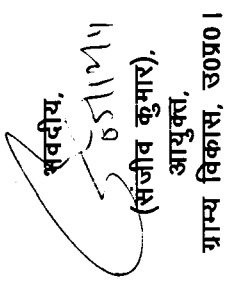 भवदीय,
(संजीव कुमार),
आयुक्त,
ग्राम्य विकास, उ०प्र०।